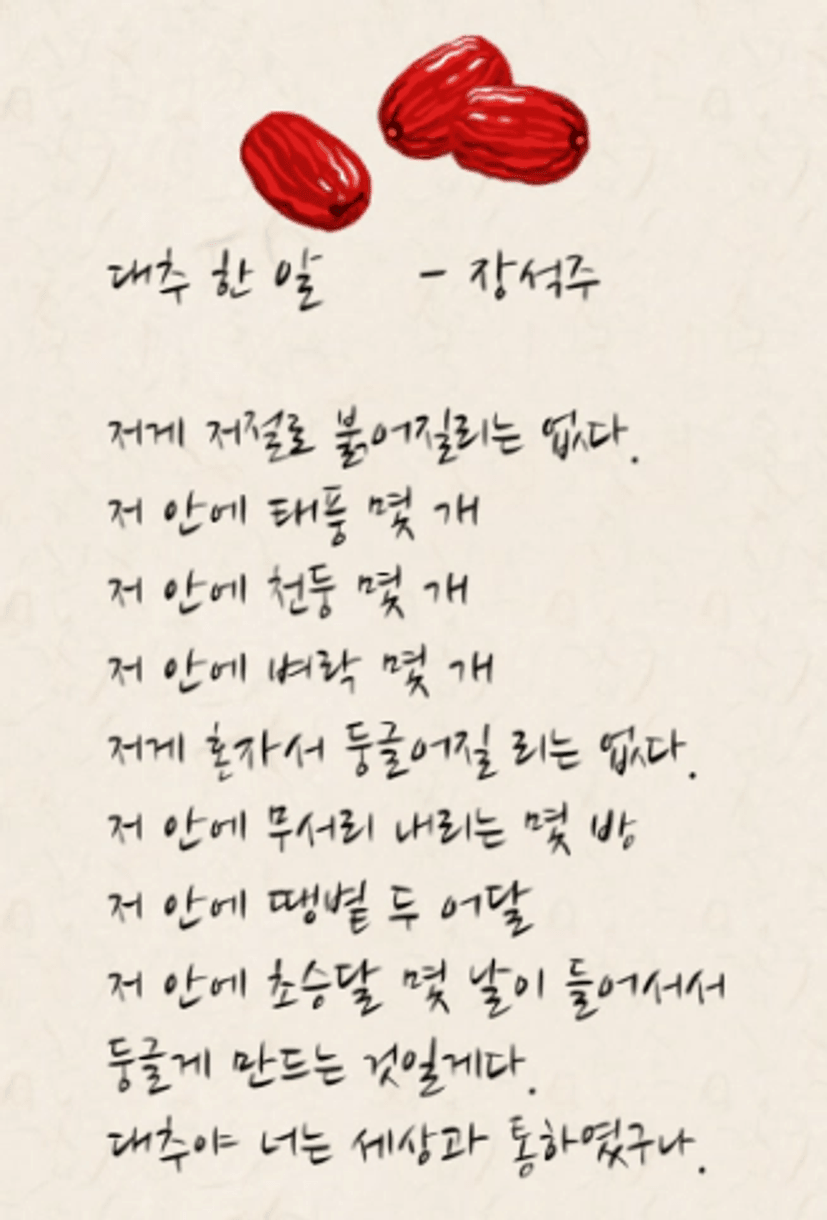 대추 한 알 - 장석주
저게 저절로 붉어질리는 없다.
저 안에 태풍 몇 개
저 안에 천둥 몇 개
저 안에 벼락 몇 개
저게 혼자서 둥글어질 리는 없다.
저 안에 무서리 내리는 몇 밤
저 안에 땡볕 두 어달
저 안에 초승달 몇 날이 들어서서
둥글게 만드는 것일게다.
대추야 너는 세상과 통하였구나.